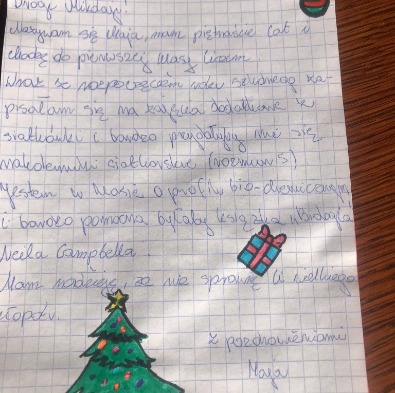 Drogi Mikołaju!
Nazywam się Maja, mam piętnaście lat i
chodzę do pierwszej klasy liceum.
Wraz z rozpoczęciem roku szkolnego za-
pisałam się na zajęcia dodatkowe z
siatkówki i bardzo przydałyby mi się
nakolanniki siatkarskie (rozmiar S)
Jestem w klasie o profilu bio-chemicznym
i bardzo pomocna byłaby książka "Biologia"
Neila Campbella.
Mam nadzieję, że nie sprawię Ci wielkiego
kłopotu.
z pozdrowieniami
Maja